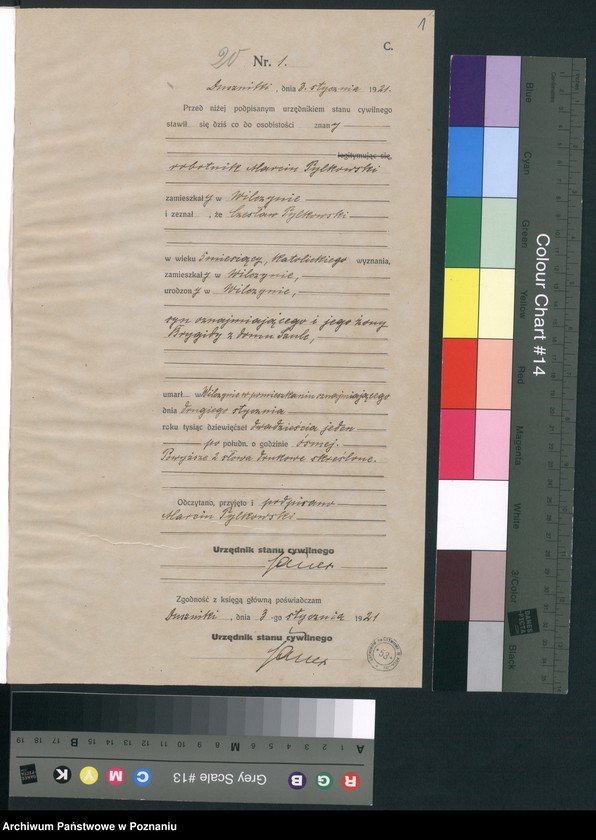 1
C.
20 Nr. 1.
Duszniki, dnia 3. stycznia 1921.
Przed niżej podpisanym urzędnikiem stanu cywilnego
stawił się dziś co do osobistości znany
legitymując się,
robotnik Marcin Pylkowski
zamieszkały w Wilczynie
i zeznał, że Czesław Pylkowski
w wieku 5 miesięcy, katolickiego wyznania,
zamieszkały w Wilczynie,
urodzony w Wilczynie,
syn oznajmiającego i jego żony
Brygidy z domu Szulc,
umarł w Wilczynie w pomieszkaniu oznajmiającego
dnia drugiego stycznia
roku tysiąc dziewięćset dwadzieścia jeden
po połudn. o godzinie ósmej.
Powyższe 2 słowa drukowe skreślone.
Odczytano, przyjęto i podpisano
Marcin Pylkowski
Urzędnik stanu cywilnego
Zgodność z księgą główną poświadczam
Duszniki, dnia 3-go stycznia 1921
Urzędnik stanu cywilnego
53
Colour Chart #14
Blue
Cyan
Green
Yellow
Red
Magenta
White
3/Color
Black
Centimetres
Grey Scale #13
R
G
B
C
M
Y
K
A 1 2 3 4 5 6 M 8 9 10 11 12 13 14 15 B 17 18 19
Archiwum Państwowe w Poznaniu